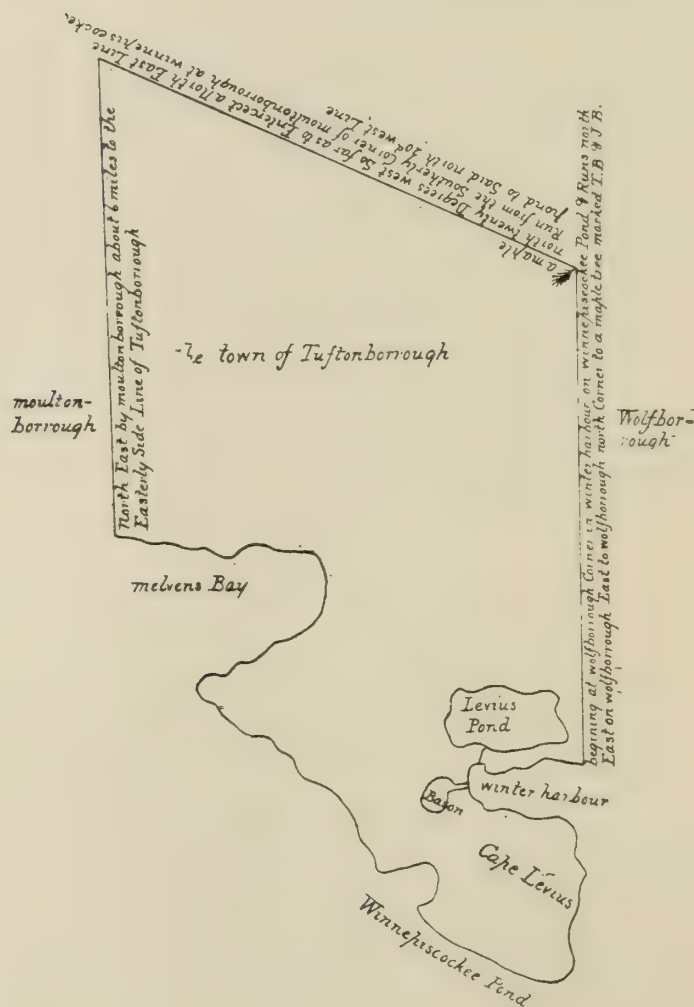 a maple
north twenty Degrees west So far as to Entercect a North East Line
Run from the Southerly Corner of moultonborrough at winnepiscocke
pond to Said north 20d west Line
north East by moultonborrough about 6 miles to the
Easterly Side Line of Tuftonborrough
-he town of Tuftonborrough
moulton-
borrough
Wolfbor-
rough
begining at wolfborrough Corner in winter harbour on winnepisceockee Pond & Runs north
East on wolfborrough East to wolfborrough north Corner to a maple tree marked T.B & J B.
melvens Bay
Levius
Pond
winter harbour
Bason
Cape Levius
Winnepiscockee Pond